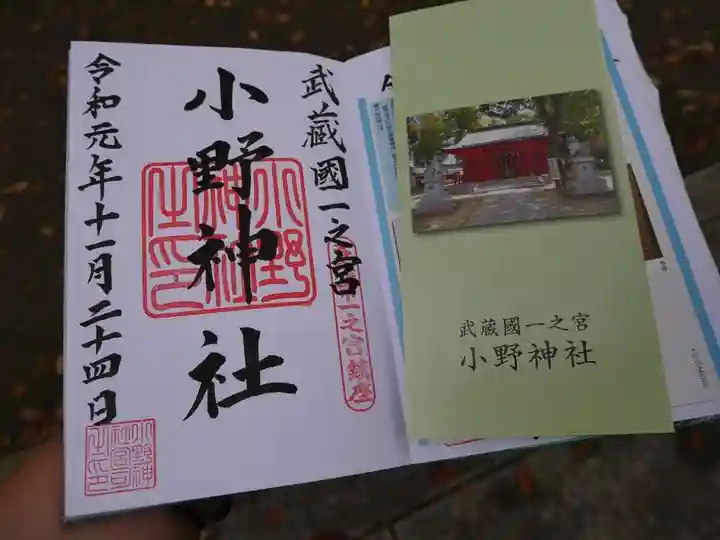 武蔵國一之宮
小野神社
令和元年十一月二十四日
小野
神社
之印
一之宮鎮座
小野神
社宮司
之印
武蔵國一之宮
小野神社